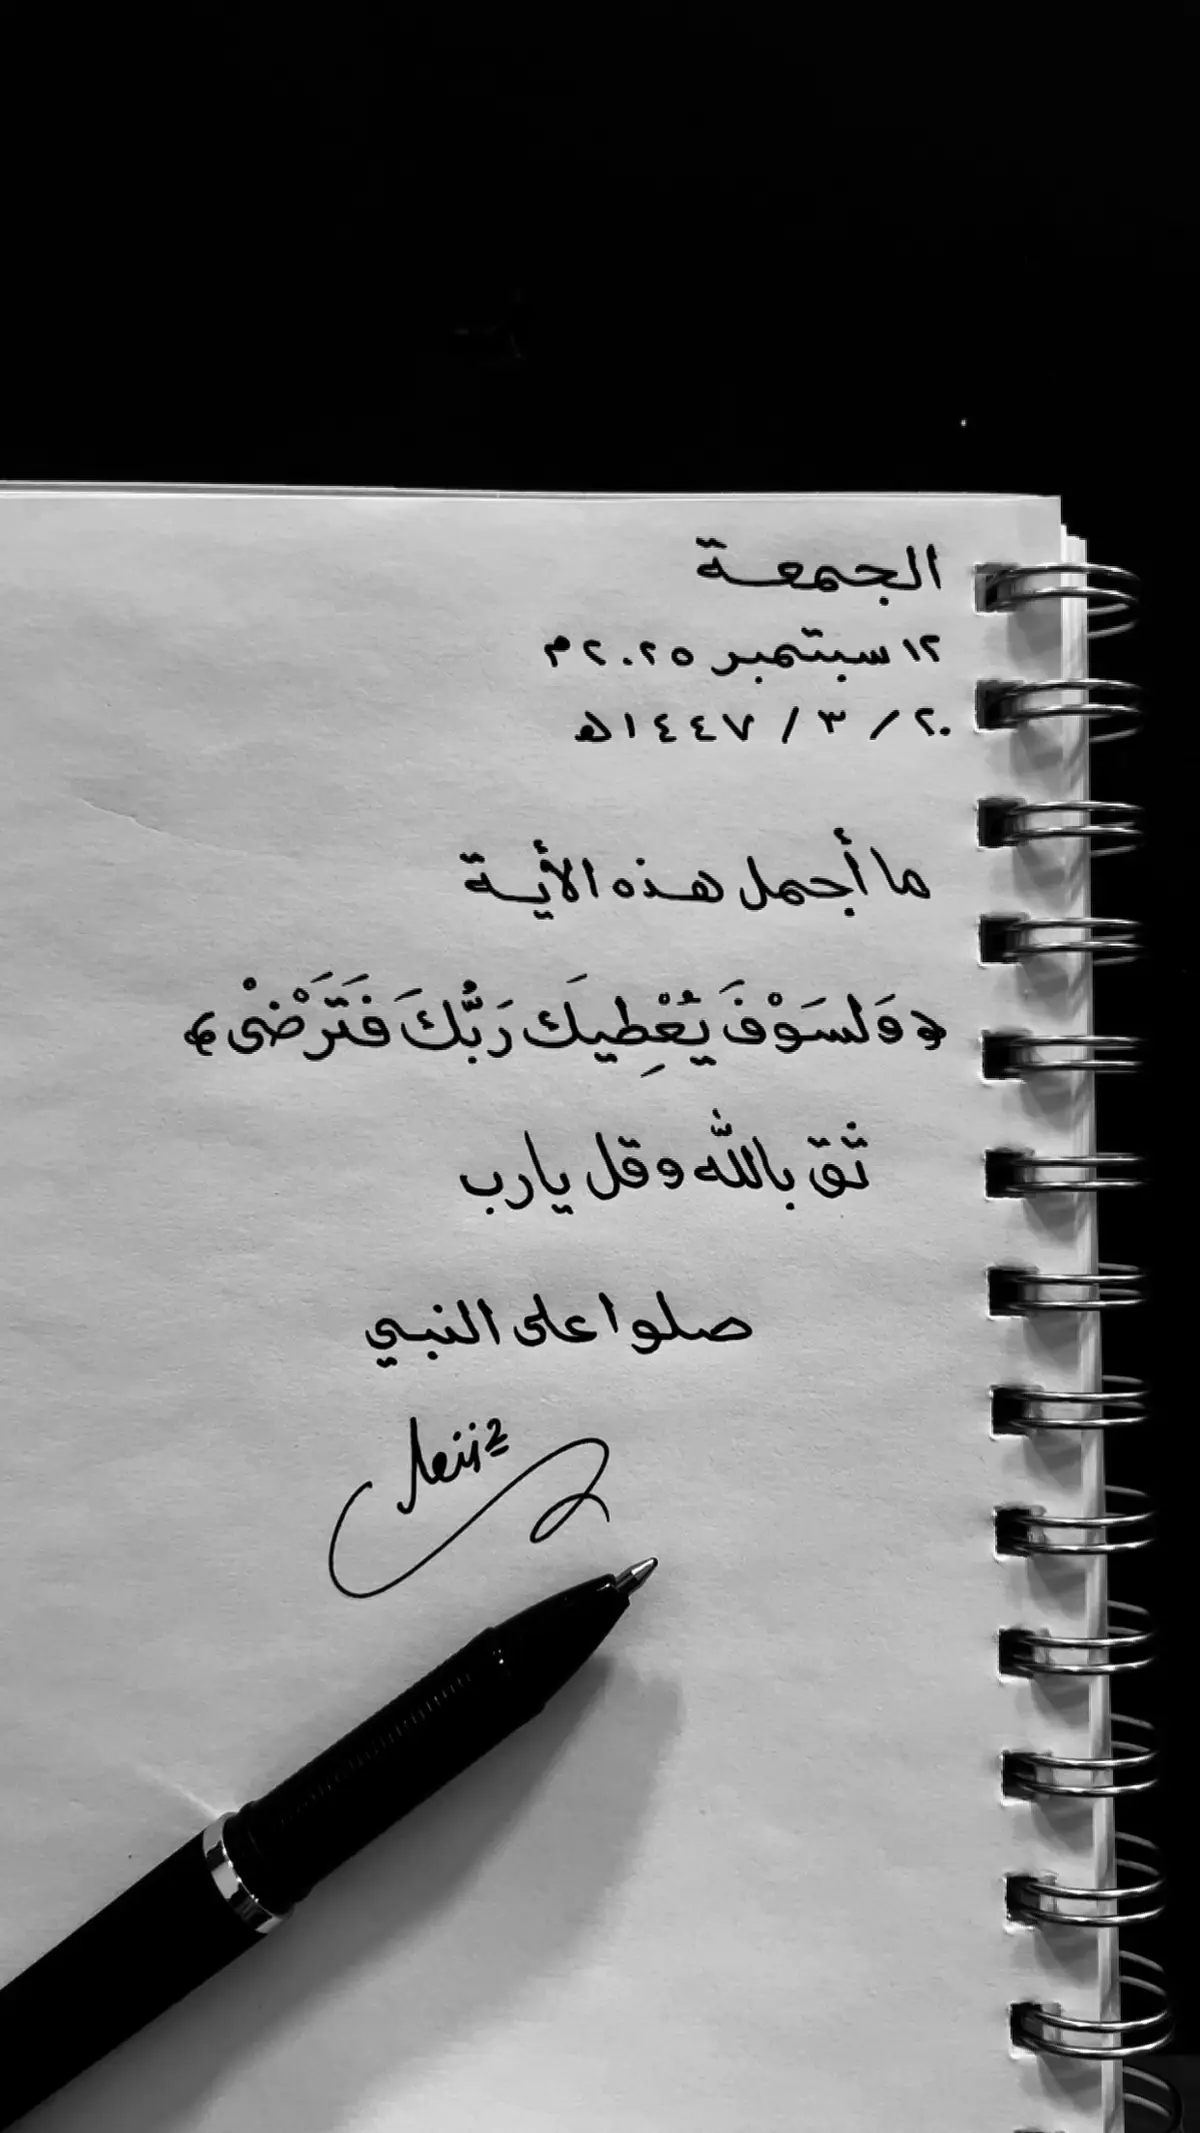 الجمعة
١٢ سبتمبر ٢٠٢٥م
٢٠ / ٣ / ١٤٤٧هـ
ما أجمل هذه الأية
﴿وَلسَوْفَ يُعْطِيكَ رَبُّكَ فَتَرَضْىْ﴾
ثق بالله وقل يارب
صلوا على النبي